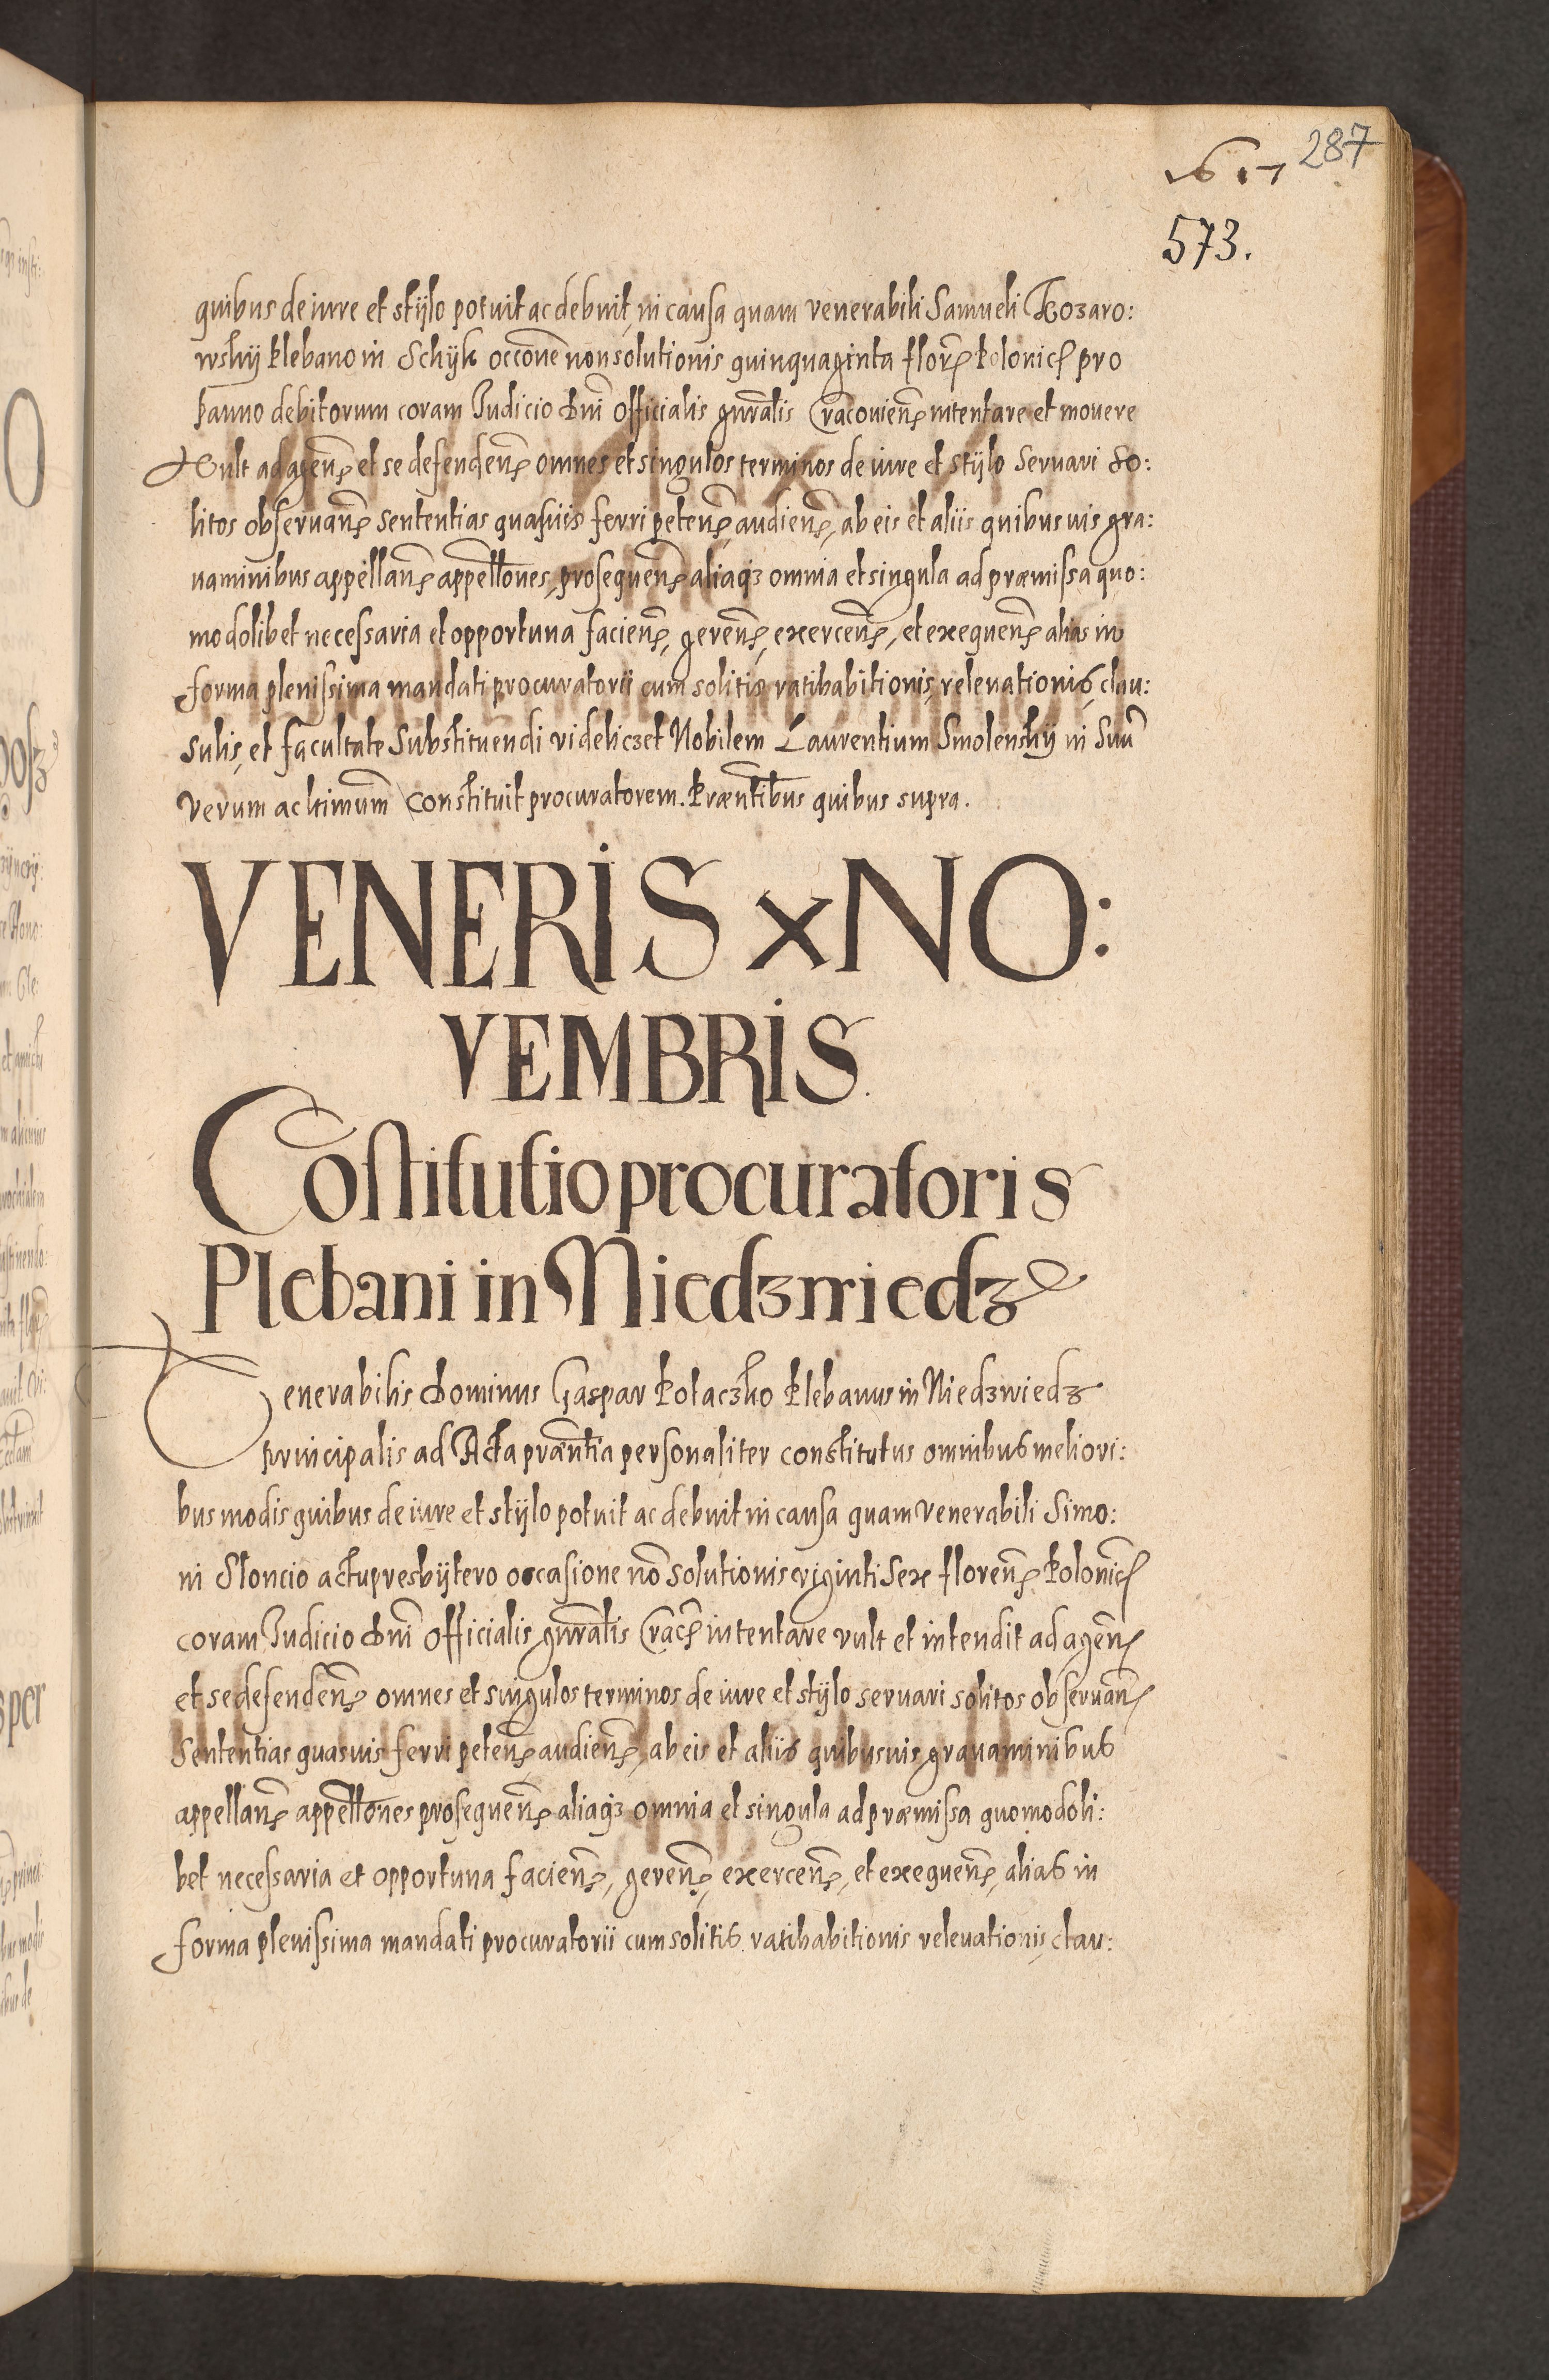 287
1617
573.
quibus de iure et stÿlo potuit ac debuit, in causa quam venerabili Samueli Kozaro:
wskÿ Plebano in Schÿk occōne non solutionis quinquaginta flor̄ Polonic pro
panno debitorum coram Judicio Dnī Officialis gnr̄alis Cracovien̄ intentare et mouere
Vult ad agen̄ et se defenden̄ omnes et singulos terminos de iure et stÿlo seruari so:
litos obseruan̄ sententias quasuis ferri peten̄, audien̄, ab eis et aliis quibusuis gra:
uaminibus appellan̄ appellōnes, prosequen̄ aliaqz omnia et singula ad præmissa quo:
modolibet necessaria et opportuna facien̄, geren̄, exercen̄, et exequen̄ alias in
forma plenissima mandati procuratorii cum solitis ratihabitionis, releuationis, clau:
sulis, et facultate substituendi videliczet Nobilem Laurentium Smolenskÿ in suū
verum ac ltimum constituit procuratorem. Præntībus quibus supra.
VENERIS X NO:
VEMBRIS
Costitutio procuratoris
Plebani in Niedzwiedz
Venerabilis Dominus Gaspar Kolaczko Plebanus in Niedzwiedz
principalis ad Acta præntīa personaliter constitutus omnibus meliori:
bus modis quibus de iure et stÿlo potuit ac debuit in causa quam venerabili Simo:
ni Sloncio actu presbÿtero occasione nō solutionis viginti sex floren̄ Polonic̄
coram Judicio Dnī Officialis gnr̄alis Crac̄ intentare vult et intendit ad agen̄
et se defenden̄ omnes et singulos terminos de iure et stÿlo seruari solitos obseruan̄
Sententias quasuis ferri peten̄, audien̄, ab eis et aliis quibusuis grauaminibus
appellan̄ appellōnes prosequen̄ aliaqz omnia et singula ad præmissa quomodoli:
bet necessaria et opportuna facien̄, geren̄, exercen̄, et exequen̄, alias in
forma plenissima mandati procuratorii cum solitis ratihabitionis releuationis, clau: